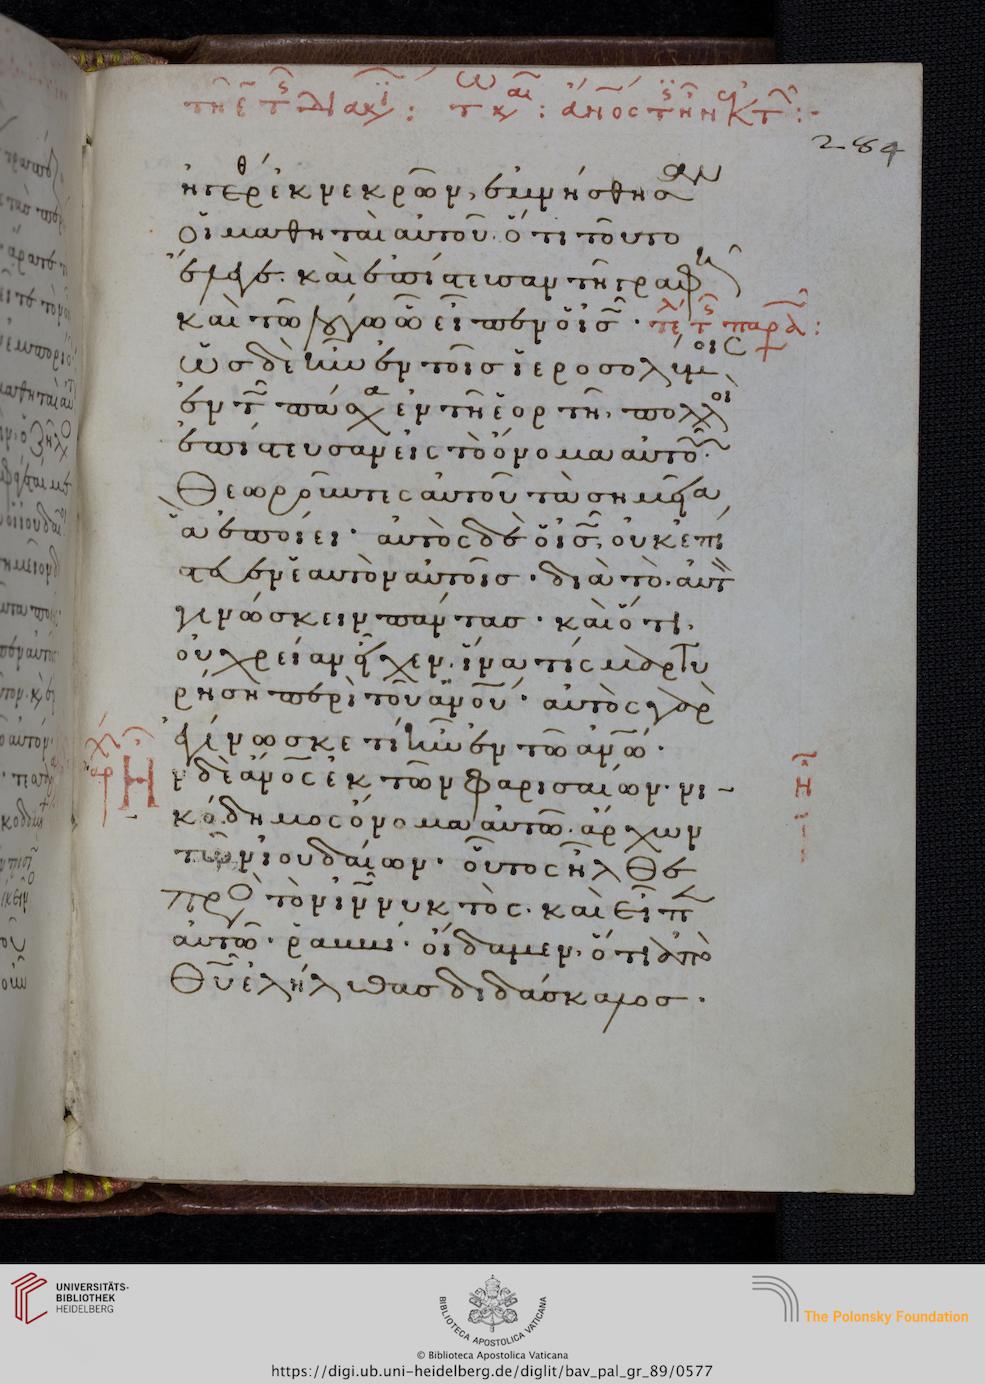 τῆ ε τῆς διακ: τ κυ : ἄνος τις ἦν ἐκ τ :-
284
ἠγέρθ ἐκ νεκρῶν, ἐμνήσθησαν
οἱ μαθηταὶ αὐτοῦ. ὅτι τοῦτο
ἔλεγε. καὶ ἐπίστευσαν τῆ γραφῆ
καὶ τῶ λόγω ὧ εἶπεν ὁ ἰς̅. τέ τς παρ :
ὡς δὲ ἦν ἐν τοῖς ἱεροσολύμοις
ἐν τῶ πάσχα ἐν τῆ ἑορτῆ, πολλοὶ
ἐπίστευσαν εἰς τὸ ὄνομα αὐτοῦ.
Θεωροῦντες αὐτοῦ τὰ σημεῖα,
ἃ ἐποίει. αὐτὸς δὲ ὁ ἰς̅, οὐκ ἐπί
στευεν ἑαυτὸν αὐτοῖς. διὰ τὸ αὐτὸν
γινώσκειν πάντας. καὶ ὅτι
οὐ χρείαν εἶχεν. ἵνα τίς μαρτυ
ρήση περὶ τοῦ ἀνου. αὐτὸς γὰρ
ἐγίνωσκε τί ἦν ἐν τῶ ἀνω.
Ἦ
ν δὲ ἄνος ἐκ τῶν φαρισαίων. νι-
κόδημος ὄνομα αὐτῶ. ἄρχων
τῶν ἰουδαίων. οὗτος ἦλθε
πρὸς τὸν ἰν̅ νυκτὸς. καὶ εἶπεν
αὐτῶ. ῥαββί. οἴδαμεν, ὅτι ἀπὸ
Θυ̅ ἐλήλυθας διδάσκαλος.
UNIVERSITÄTS-
BIBLIOTHEK
HEIDELBERG
BIBLIOTECA APOSTOLICA VATICANA
The Polonsky Foundation
© Biblioteca Apostolica Vaticana
https://digi.ub.uni-heidelberg.de/diglit/bav_pal_gr_89/0577